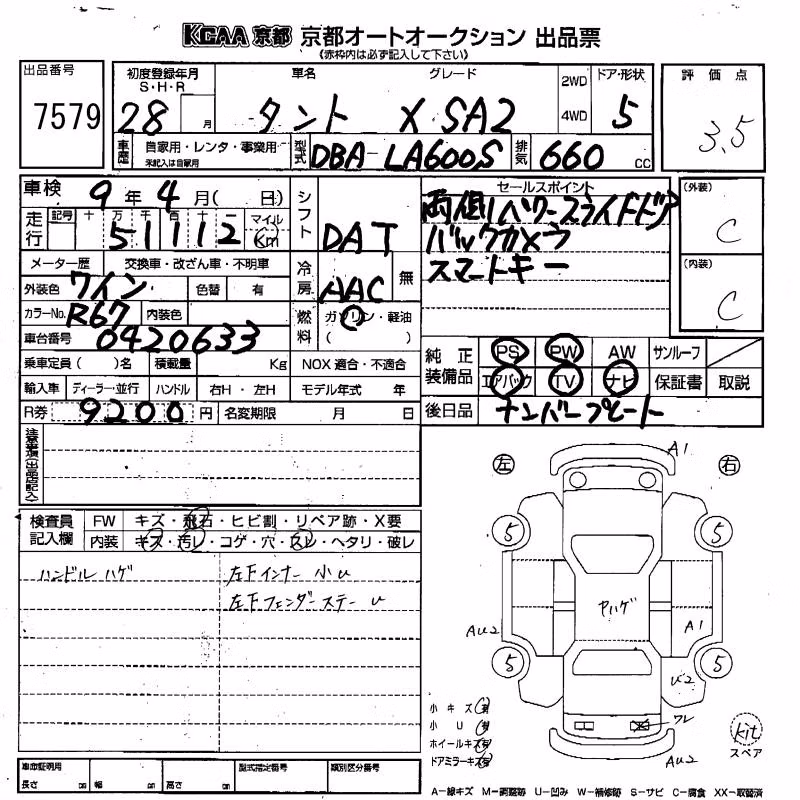 KCAA 京都 京都オートオークション 出品票
(赤枠内は必ず記入して下さい)
出品番号 7579
初度登録年月 S・H・R 28 月
車名 タント
グレード X SA2
2WD 4WD
ドア・形状 5
評価点 3.5
車歴 自家用・レンタ・事業用 未記入は自家用
型式 DBA-LA600S
排気 660 CC
車検 9年4月( 日)
シフト DAT
走行 記号 十 万 千 百 十 一 51112 マイル Km
メーター歴 交換車・改ざん車・不明車
冷房 AAC 無
外装色 ワイン 色替 有
カラーNo. R67 内装色
燃料 ガソリン・軽油 ( )
車台番号 0420633
乗車定員( )名 積載量 Kg NOX適合・不適合
輸入車 ディーラー・並行 ハンドル 右H・左H モデル年式 年
R券 9200円 名変期限 月 日
セールスポイント
両側パワースライドドア
バックカメラ
スマートキー
(外装) C
(内装) C
純正装備品 PS PW AW サンルーフ
エアバック TV ナビ 保証書 取説
後日品 ナンバープレート
注意事項(出品店記入)
検査員記入欄 FW キズ・飛石・ヒビ割・リペア跡・X要
内装 キズ・汚レ・コゲ・穴・スレ・ヘタリ・破レ
ハンドル ハゲ
左下インナー 小U
左下フェンダーステー U
左 右
A1
5 5
ヤハゲ
AU2 A1
5 5
U2
ワレ
AU2
小キズ 有
小U 有
ホイールキズ 有
ドアミラーキズ 有
kit スペア
車庫証明用 長さ cm 幅 cm 高さ cm
型式指定番号 類別区分番号
A−線キズ M−調整跡 U−凹み W−補修跡 S−サビ C−腐食 XX−取替済